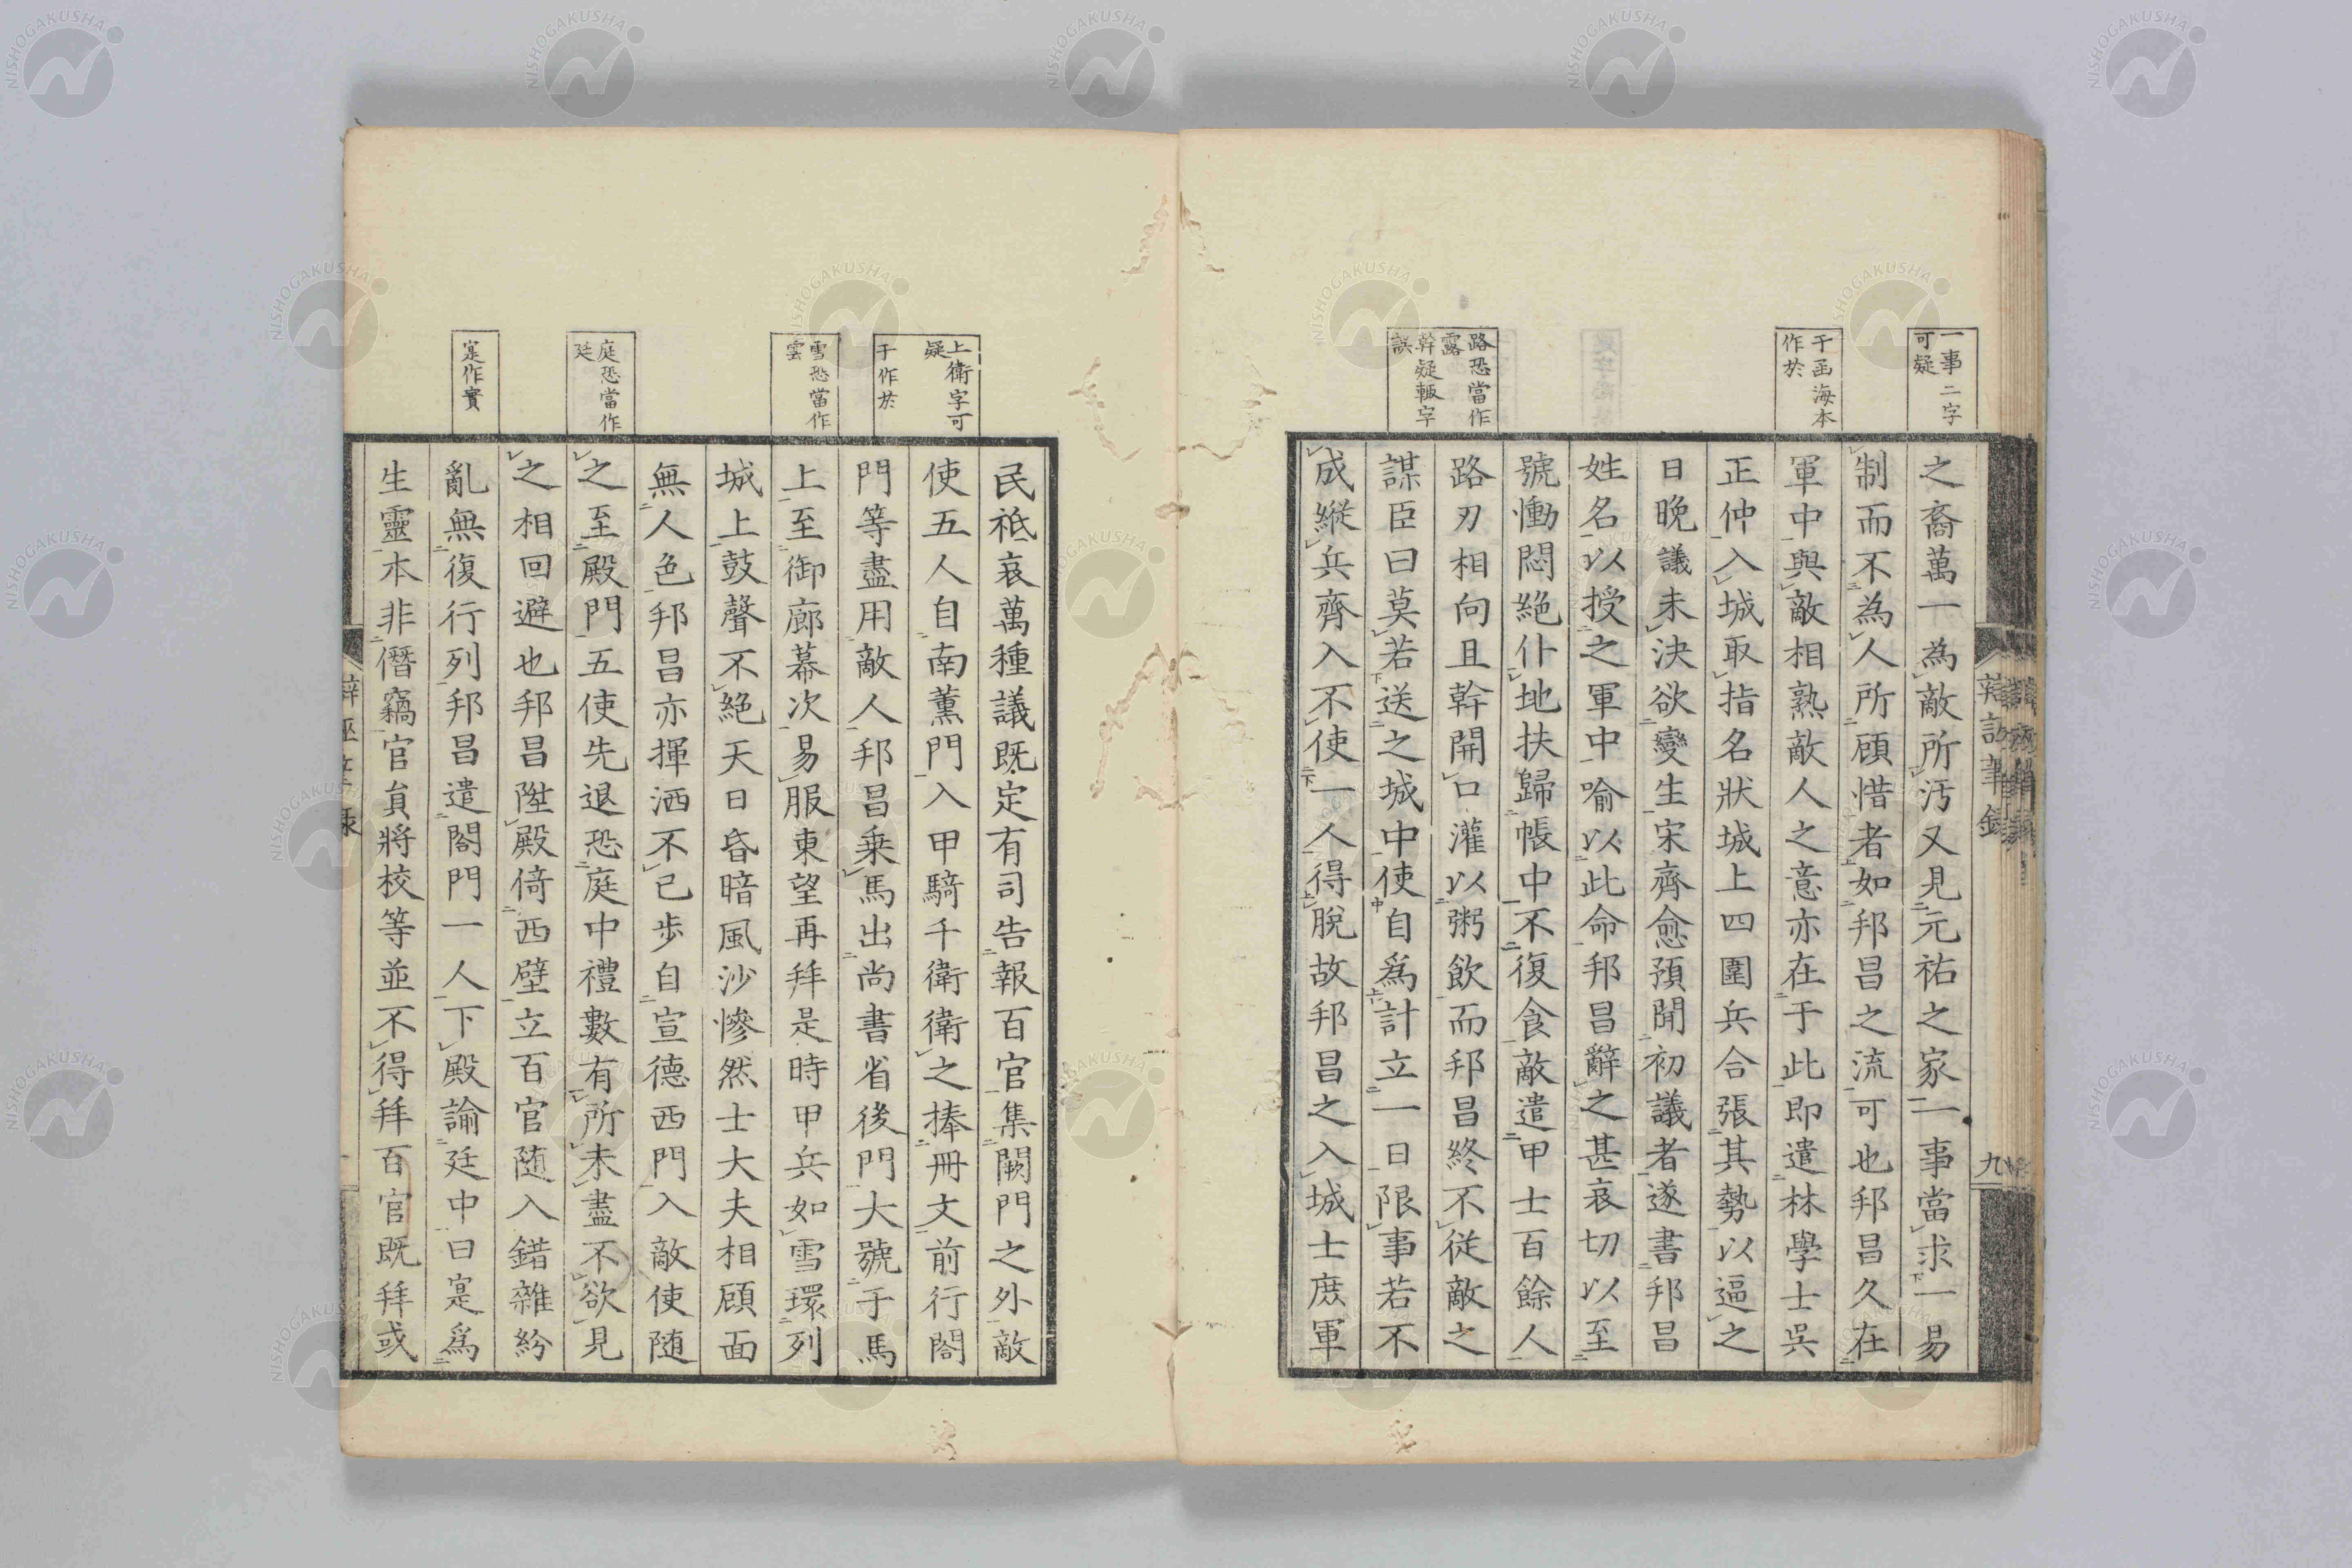 一事二字
可疑
于函海本
作於
路恐當作
露
幹疑輙字
誤
之裔萬一為敵所汚又見元祐之家一事當求一易
制而不為人所顧惜者如邦昌之流可也邦昌久在
軍中與敵相熟敵人之意亦在于此即遣林學士吳
正仲入城取指名狀城上四圍兵合張其勢以逼之
日晩議未決欲變生宋齊愈預聞初議者遂書邦昌
姓名以授之軍中喻以此命邦昌辭之甚哀切以至
號慟悶絕仆地扶歸帳中不復食敵遣甲士百餘人
路刃相向且幹開口灌以粥飲而邦昌終不従敵之
謀臣曰莫若送之城中使自爲計立一日限事若不
成縱兵齊入不使一人得脫故邦昌之入城士庶軍
九
上衛字可
疑
于作於
雪恐當作
雲
庭恐當作
廷
寔作實
民祇哀萬種議既定有司告報百官集闕門之外敵
使五人自南薫門入甲騎千衛衛之捧冊文前行閤
門等盡用敵人邦昌乗馬出尚書省後門大號于馬
上至御廊幕次易服東望再拜是時甲兵如雪環列
城上鼓聲不絕天日昏暗風沙慘然士大夫相顧面
無人色邦昌亦揮洒不已步自宣德西門入敵使随
之至殿門五使先退恐庭中禮數有所未盡不欲見
之相回避也邦昌陞殿倚西壁立百官随入錯雜紛
亂無復行列邦昌遣閤門一人下殿諭廷中曰寔爲
生靈本非僭竊官員將校等並不得拜百官既拜或